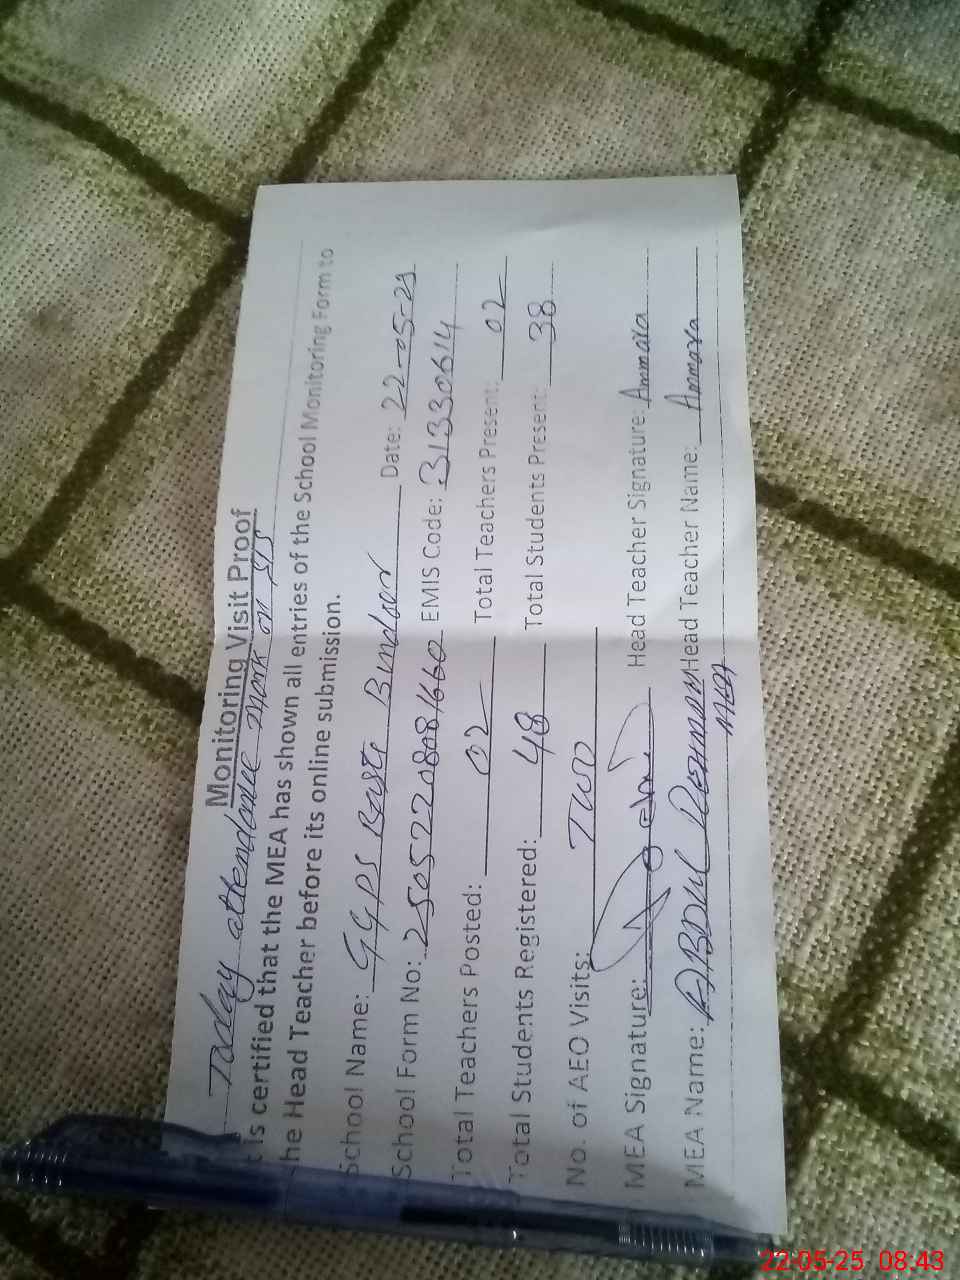 Monitoring Visit Proof
Today attendance mark on SIS
t is certified that the MEA has shown all entries of the School Monitoring Form to
he Head Teacher before its online submission.
School Name: GGPS Basti Date: 22-05-25
School Form No: 25052208081660 EMIS Code: 31330614
Total Teachers Posted: 02 Total Teachers Present: 02
Total Students Registered: 48 Total Students Present: 38
No. of AEO Visits: Two
MEA Signature: Head Teacher Signature: Ammara
MEA Name: ABDUL Rehman Head Teacher Name: Ammara
MEA
22-05-25 08:43